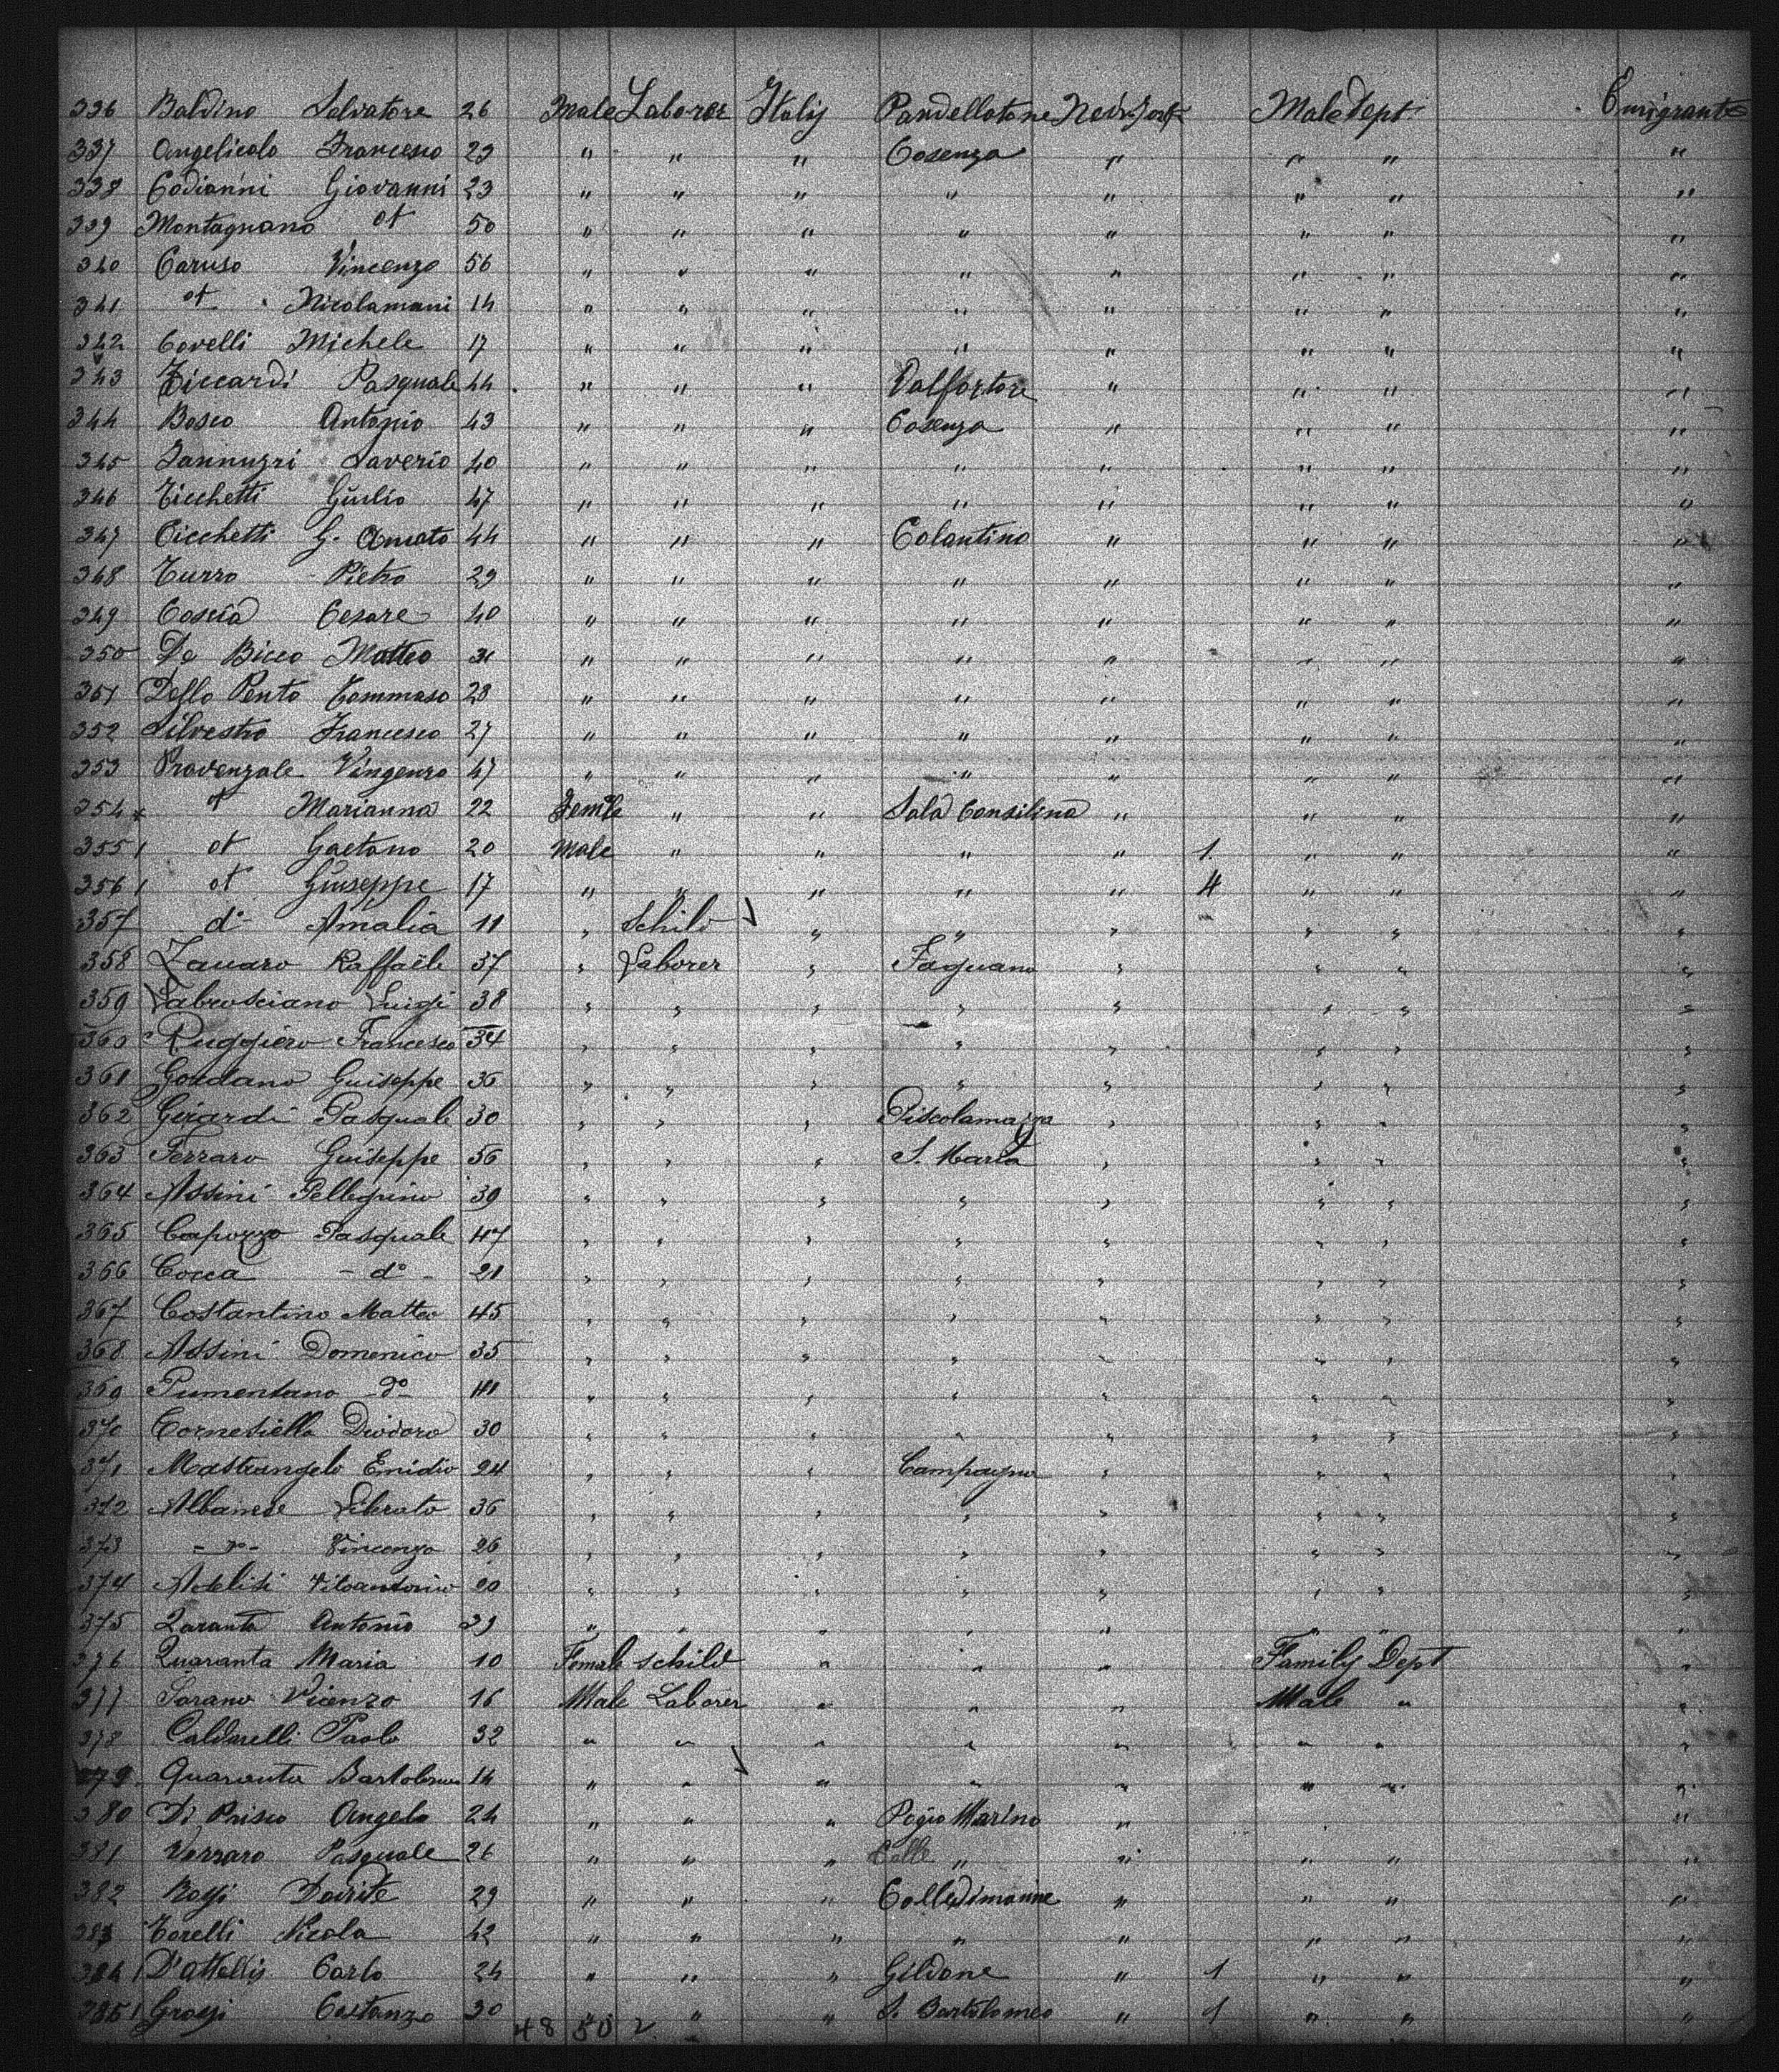 336 Baldino Salvatore 26 Male Laborer Italy Pandellatone New-York Male Dept Emigrants
337 Angelicolo Francesco 23 " " " Cosenza " " " "
338 Codianni Giovanni 23 " " " " " " " "
339 Montagnano ot 50 " " " " " " " "
340 Caruso Vincenzo 56 " " " " " " " "
341 ot Nicolamani 14 " " " " " " " "
342 Covelli Michele 17 " " " " " " " "
343 Ziccardi Pasquale 44 " " " Valfortore " " " "
344 Bosco Antonio 43 " " " Cosenza " " " "
345 Iannuzzi Saverio 40 " " " " " " " "
346 Cicchetti Giulio 47 " " " " " " " "
347 Cicchetti G. Amato 44 " " " Calantino " " " "
348 Turro Pietro 29 " " " " " " " "
349 Coscia Cesare 40 " " " " " " " "
350 De Bicco Matteo " " " " " " " "
351 Dello Pento Tommaso 28 " " " " " " " "
352 Silvestro Francesco 27 " " " " " " " "
353 Provenzale Vingenzo 47 " " " " " " " "
354 ot Marianna 22 Female " " Sala Consilina " " " "
355 ot Gaetano 20 Male " " " " 1 " " "
356 ot Giuseppe 17 " " " " " 4 " " "
357 do Amalia 11 " Schild " " " " " "
358 Zauaro Raffaele 37 " Laborer " Faguano " " " "
359 Labrusciano Luigi 38 " " " " " " " "
360 Ruggiero Francesco 34 " " " " " " " "
361 Gordano Guiseppe 36 " " " " " " " "
362 Girardi Pasquale 30 " " " Piscolamazza " " " "
363 Ferraro Guiseppe 56 " " " S. Maria " " " "
364 Assini Pellegrino 39 " " " " " " " "
365 Capozzo Pasquale 47 " " " " " " " "
366 Cocca - do - 21 " " " " " " " "
367 Costantino Matteo 45 " " " " " " " "
368 Assini Domenico 35 " " " " " " " "
369 Pumentano - do - 41 " " " " " " " "
370 Cornesiello Diodoro 30 " " " " " " " "
371 Mastrangelo Emidio 24 " " " Campagna " " " "
372 Albanese Liberato 36 " " " " " " " "
373 - do - Vincenzo 26 " " " " " " " "
374 Vitoantonio 20 " " " " " " " "
375 Zaranta Antonio 29 " " " " " " " "
376 Quaranta Maria 10 Female Schild " " " Family Dept "
377 Sarano Vicenzo 16 Male Laborer " " " Male " "
378 Caldarelli Paolo 32 " " " " " " " "
379 Quaranta Bartolomeo 14 " " " " " " " "
380 Di Prisco Angelo 24 " " " Pogio Marino " "
381 Verraro Pasquale 26 " " " Colle " " " " "
382 Rossi Davide 29 " " " Colledimanine " " " "
383 Torelli Nicola 42 " " " " " " " "
384 D'Attellis Carlo 24 " " " Gildone " 1 " " "
385 Grossi Costanzo 30 " " " S. Bartolomeo " 1 " " "
48 50 2